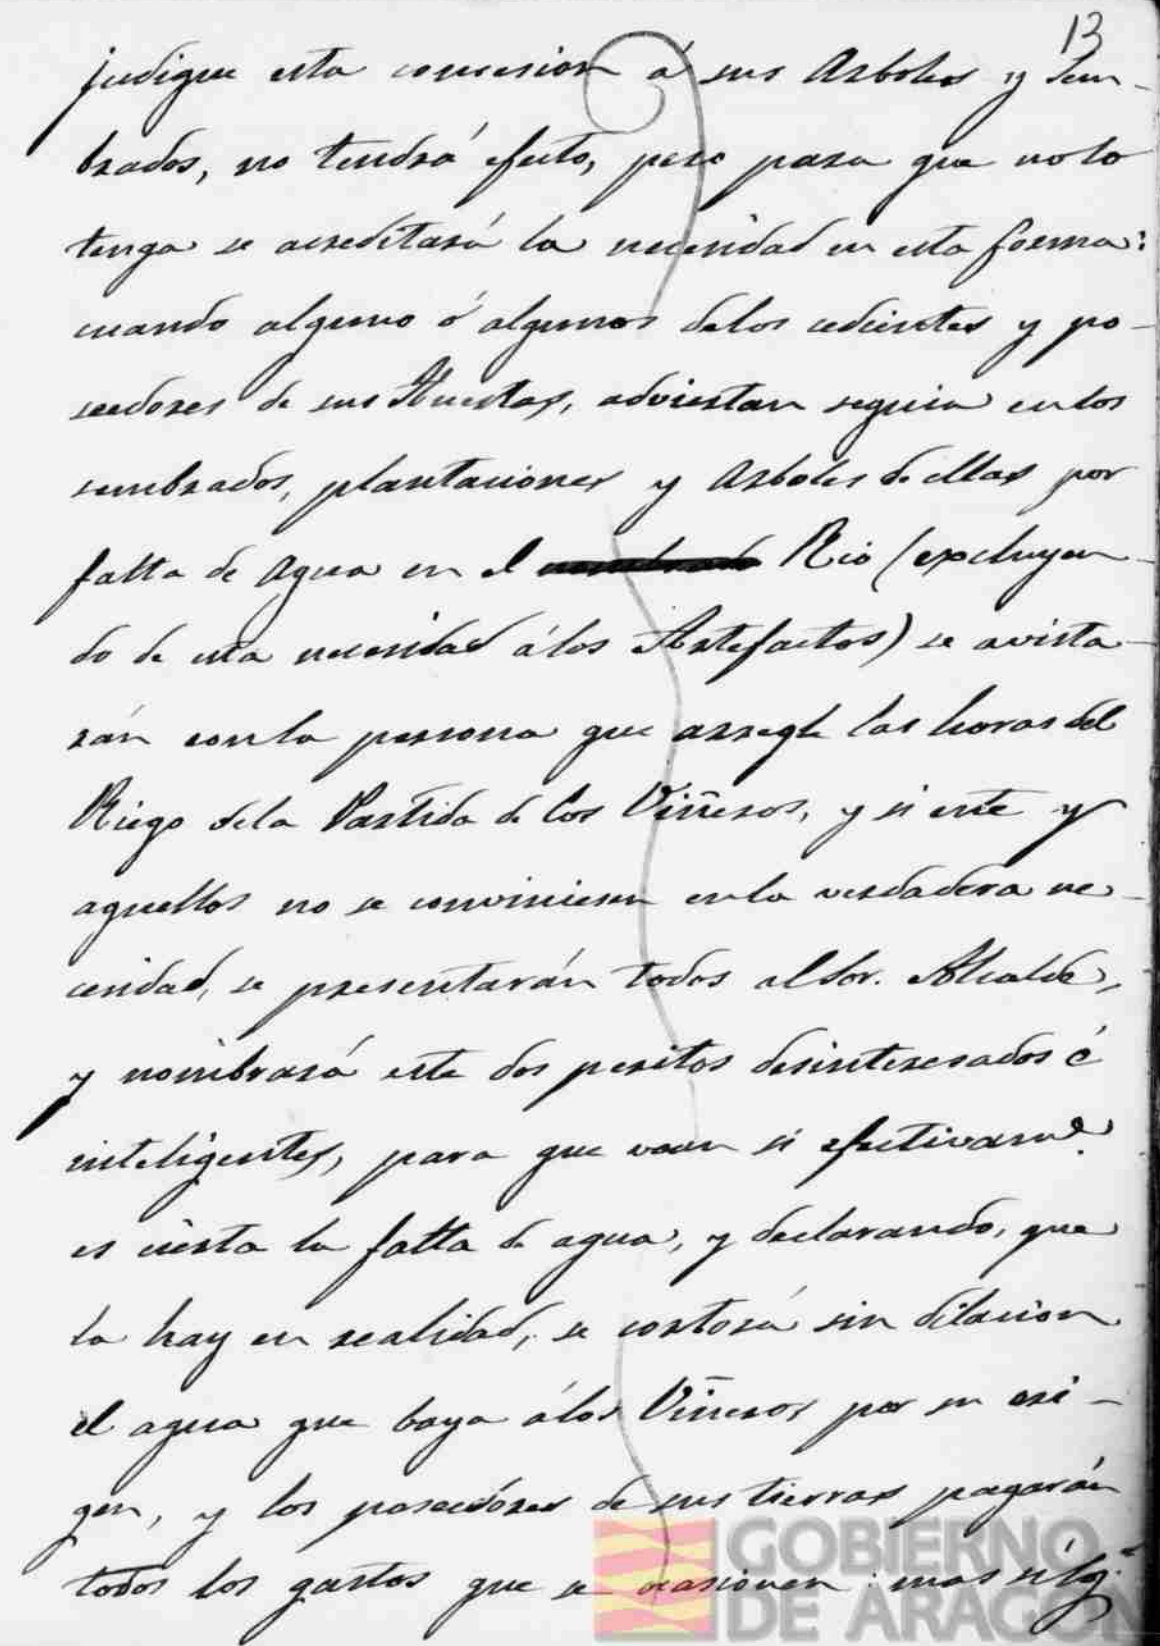 13
judique esta concesion á sus Arboles y Sem-
brados, no tendrá efecto, pero para que no lo
tenga se acreditará la necesidad en esta forma:
cuando alguno ó algunos delos cedientes y po-
seedores de sus Huertas, adviertan sequia en los
sembrados, plantaciones y Arboles de ellas por
falta de Agua en el Rio (excluyen-
do de esta necesidad álos Artefactos) se avista-
rán conla persona que arregle las horas del
Riego dela Partida de los Viñeros, y si este y
aquellos no se conviniesen enla verdadera ne-
cesidad, se presentarán todos al Sor. Alcalde,
y nombrará este dos peritos desinteresados é
inteligentes, para que vean si efectivamte.
es cierta la falta de agua, y declarando, que
la hay en realidad, se cortará sin dilacion
el agua que baya álos Viñeros por su ori-
gen, y los poseedores de sus tierras pagarán
todos los gastos que se ocasionen: mas si los
GOBIERNO
DE ARAGON